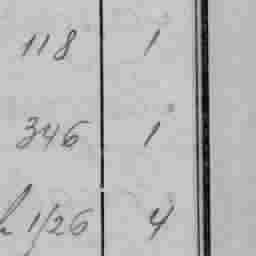 118 1
346 1
1/26 4